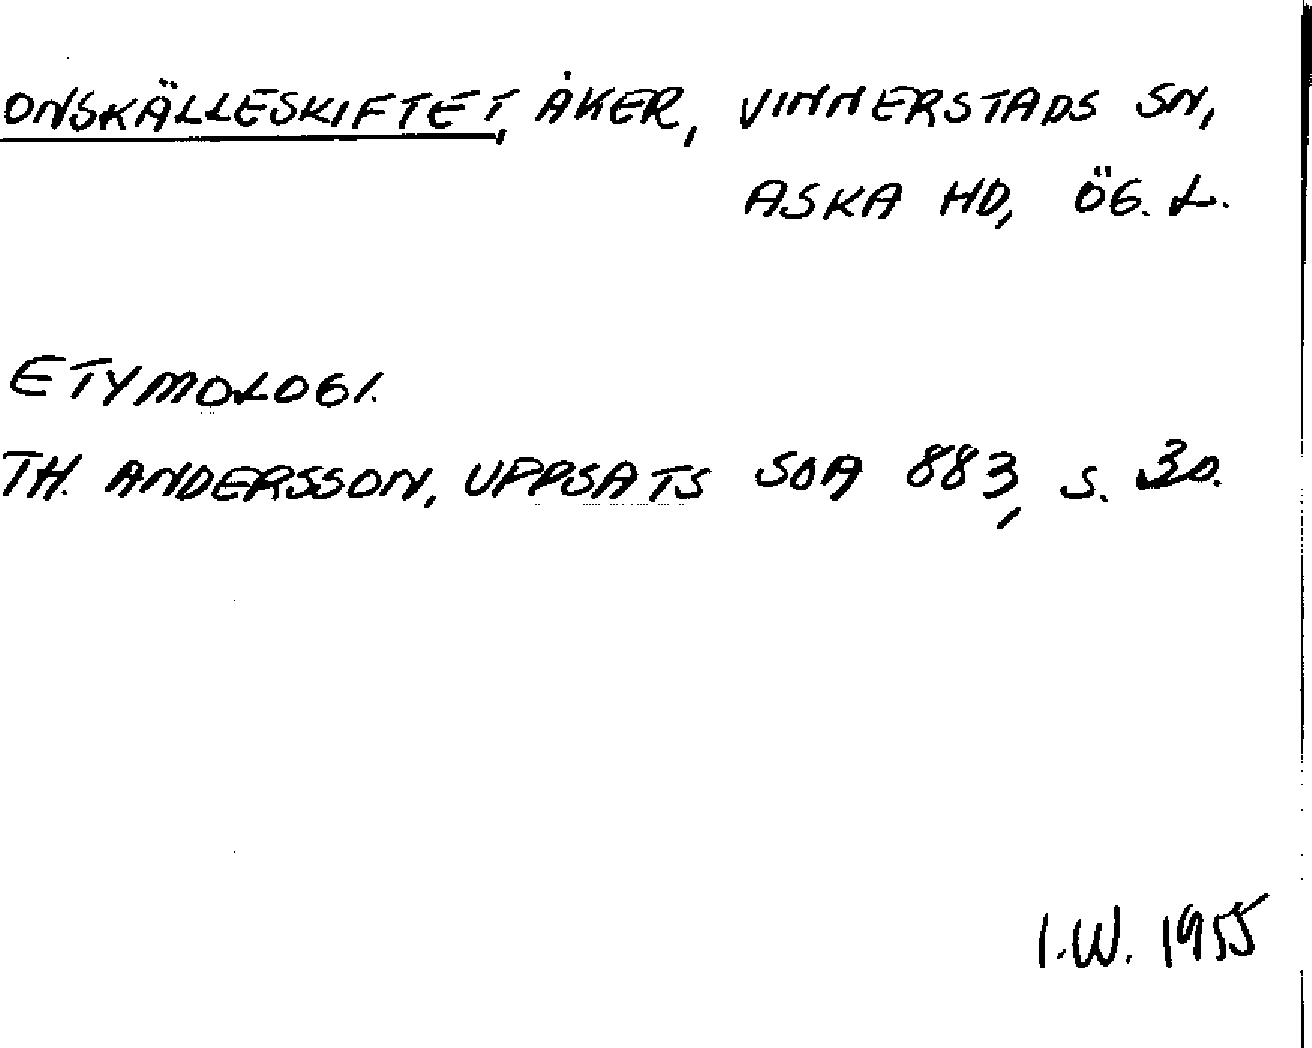 ONSKÄLLESKIFTET, ÅKER, VINNERSTADS SN,
ASKA HD, ÖG. L.
ETYMOLOGI.
TH. ANDERSSON, UPPSATS SOA 883, S. 30.
I.W. 1955